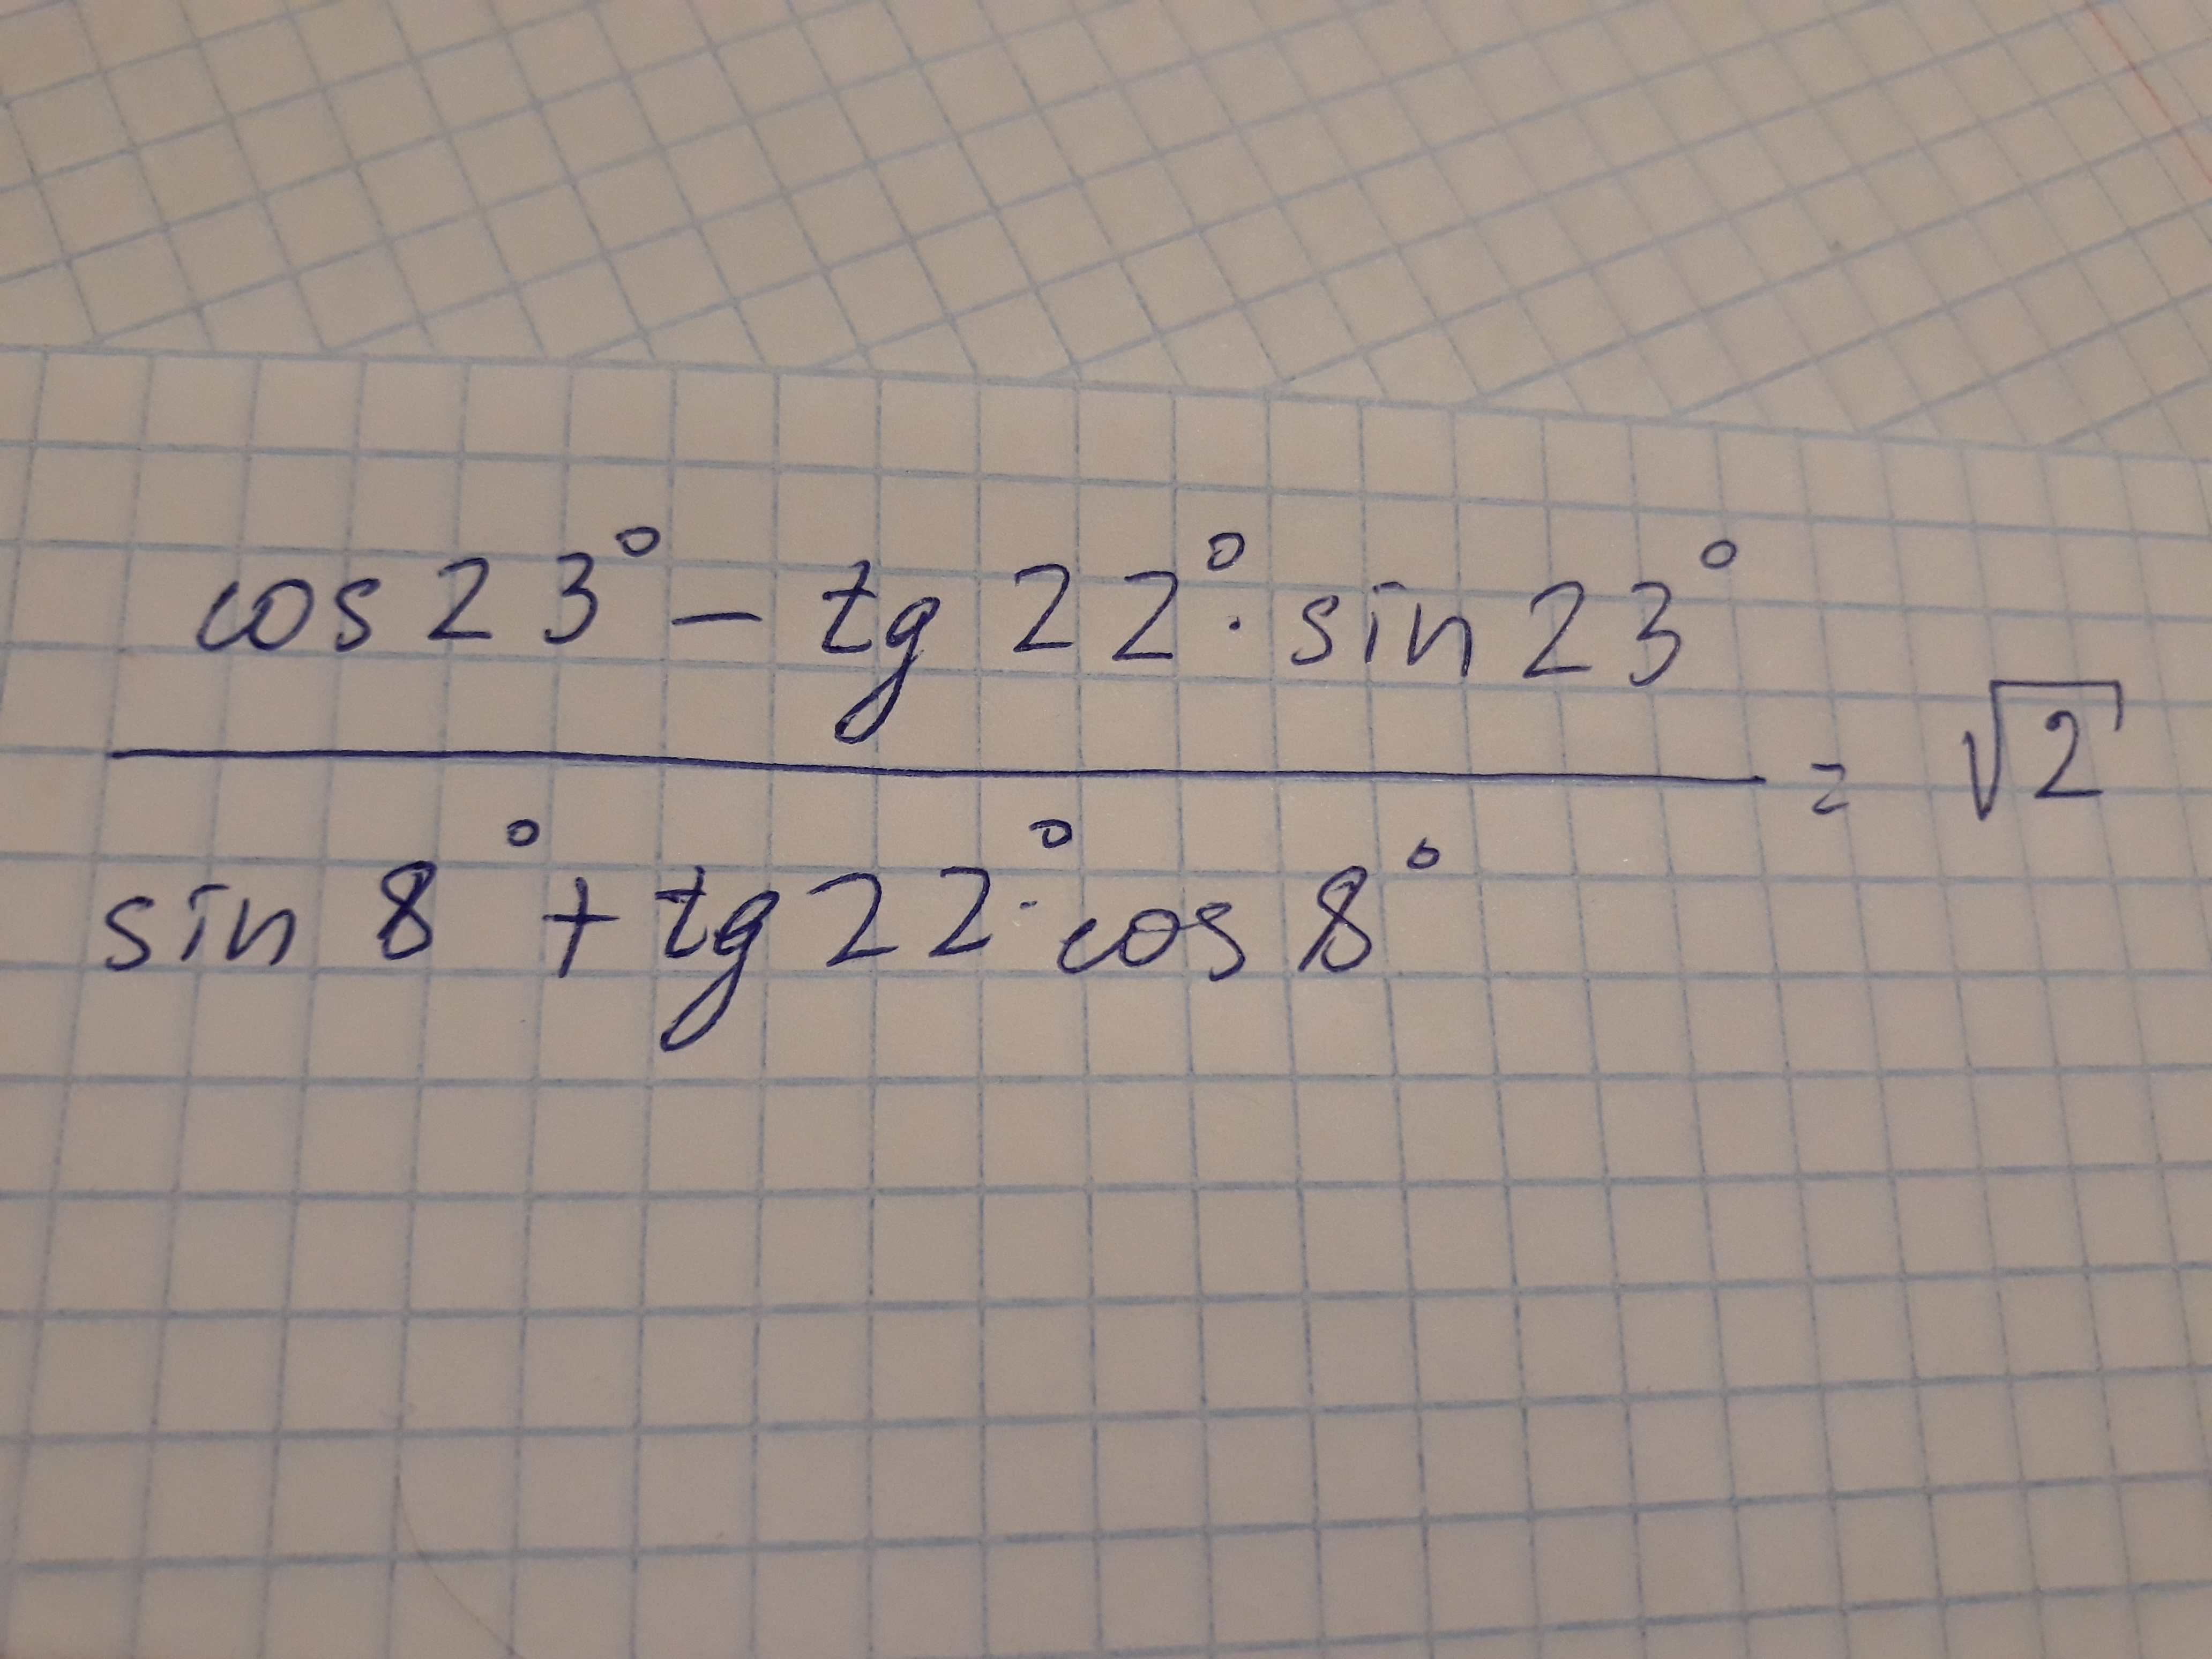 cos 23° − tg 22° · sin 23°
= √2
sin 8° + tg 22° · cos 8°